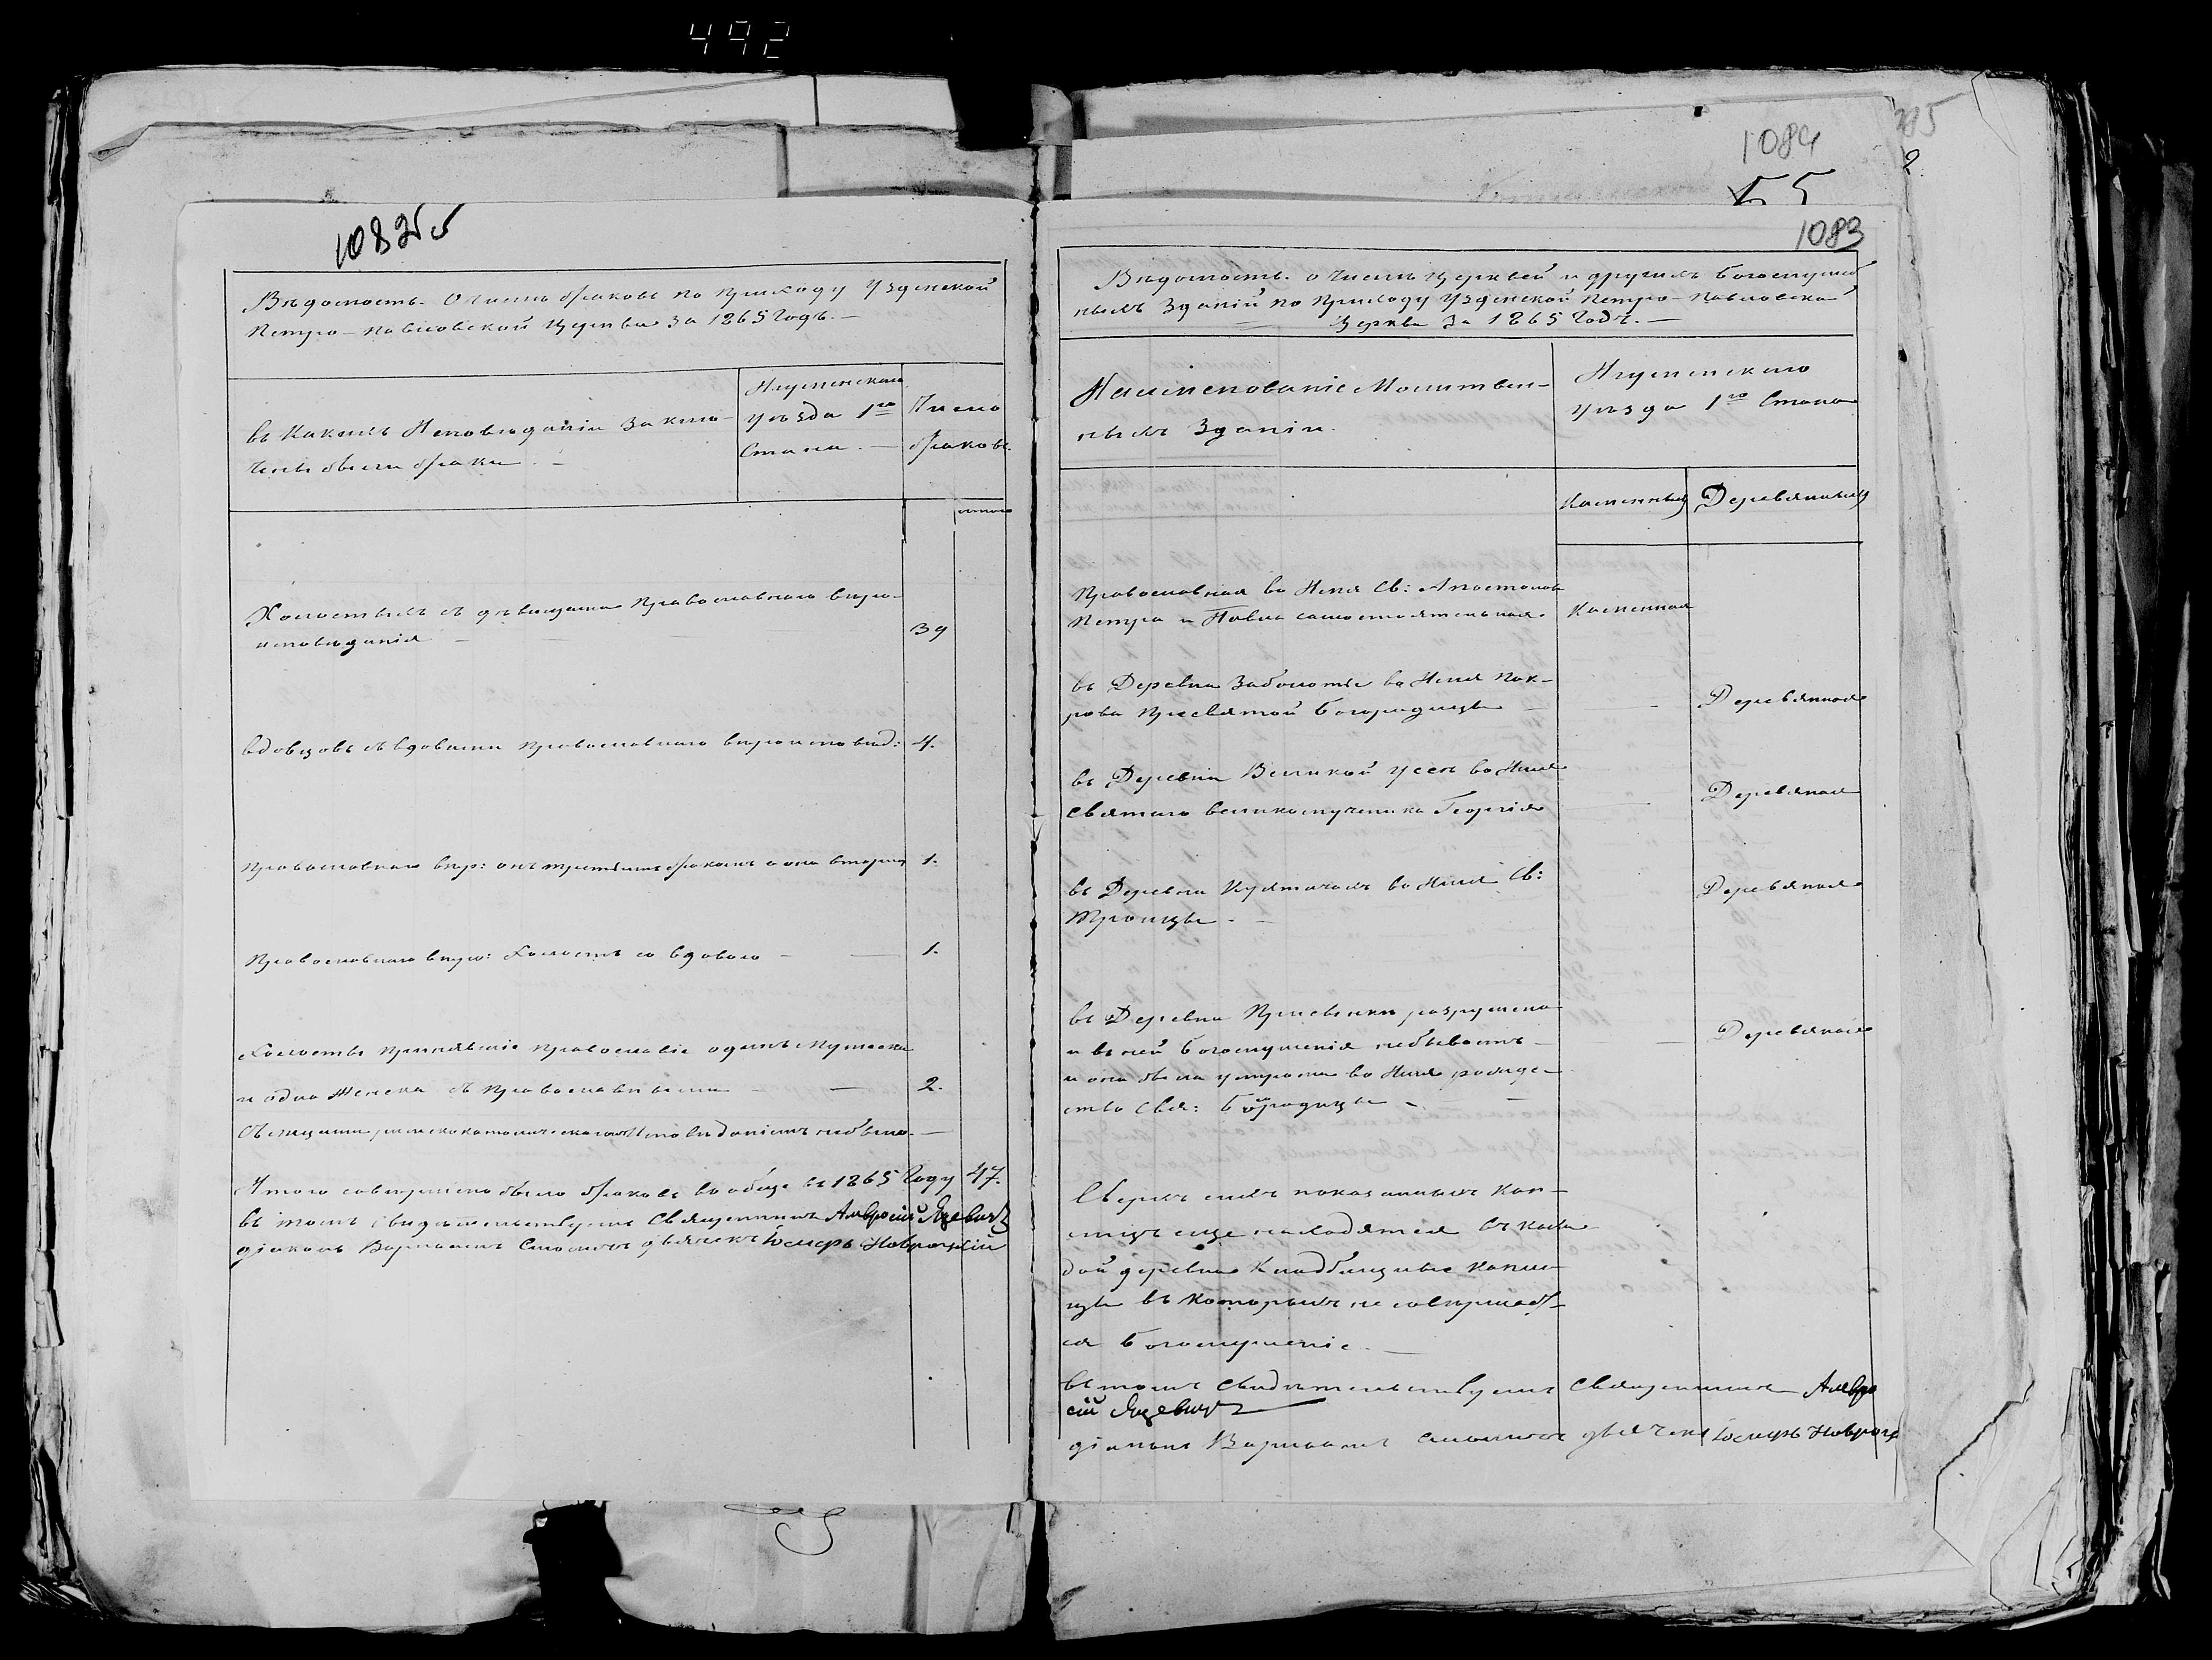 492
1082 об
Вѣдомость. О числѣ браковъ по приходу Узденской
Петро-Павловской церкви за 1865 годъ. —
въ какомъ исповѣданіи заклю-
чены были браки. —
Игуменскаго
уѣзда 1го
Стана. —
Число
браковъ.
итого
Холостыхъ съ дѣвицами православнаго вѣро-
исповѣданія —
39
вдовцовъ съ вдовами православнаго вѣроисповѣд:
4.
Православнаго вѣр: онъ третьимъ бракомъ а она вторым
1.
Православнаго вѣро: холостъ со вдовою — —
1.
Холосты принявшіе православіе одинъ мужеска
и одна женска съ православными — —
2.
Съ лицами римскокатолическаго исповѣданія не было. —
Итого совершено было браковъ вообще въ 1865 году
47.
въ томъ свидѣтельствуемъ Священникъ Амвросій Яцевичъ
діаконъ Варлаамъ дьячекъ Іосифъ Навроцкій
1084
55
2
1083
Вѣдомость. о числѣ церквей и другихъ богослужеб
ныхъ зданій по приходу Узденской Петро-Павловской
церкви за 1865 годъ. —
Наименованіе Молитвен-
ныхъ зданій.
Игуменскаго
уѣзда 1го Стана
Каменныя
Деревянныя
Православная во имя Св: Апостоловъ
Петра и Павла самостоятельная.
Каменная
въ Деревни Заболотье во имя пок-
рова Пресвятой Богородицы —
Деревянная
въ Деревни Великой Усен во имя
Святаго великомученика Георгія
Деревяная
въ Деревни во имя Св:
Троицы. —
Деревяная
въ Деревни разрушена
и въ ней богослуженія небываетъ —
и она была устроена во имя рожде-
ство Свя: Богородицы — —
Деревяная
Сверхъ сихъ показанныхъ кап-
лицъ еще находятся въ каж-
дой деревни Кладбищные капли-
цы въ которыхъ не совершает-
ся богослуженіе. —
въ томъ свидѣтельствуемъ Священникъ Амвро
сій Яцевичъ
діаконъ Варлаамъ дьячекъ Іосифъ Навроц